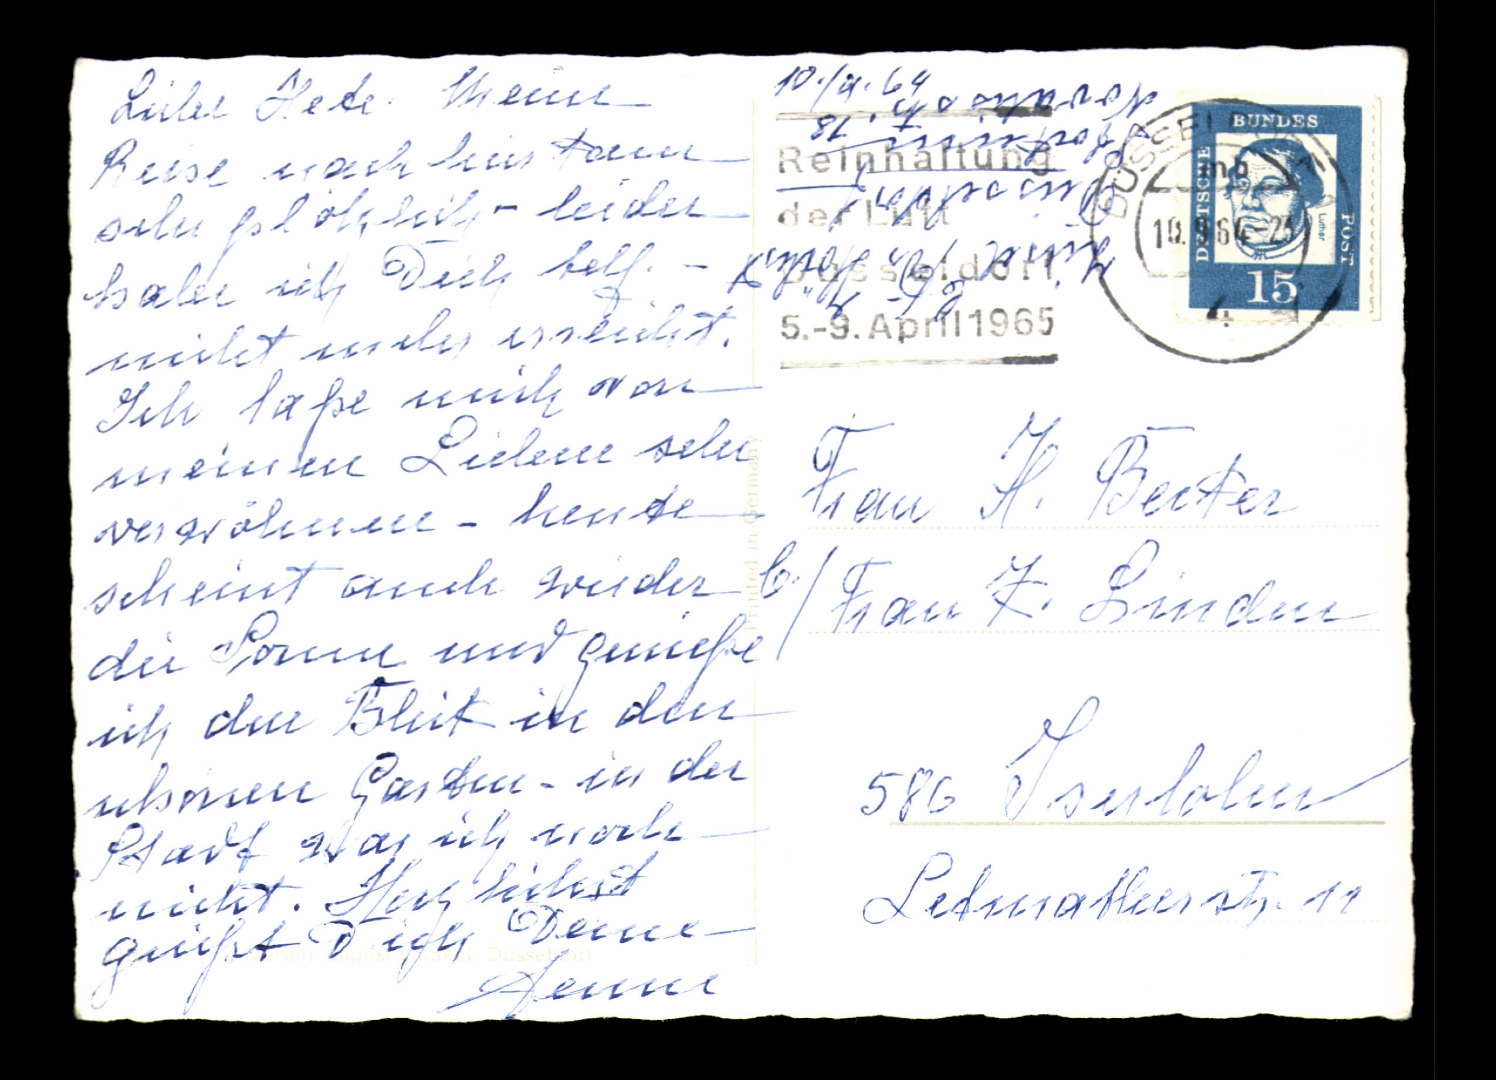 Liebe Hede. Meine
Reise nach hier kam
sehr plötzlich - leider
habe ich Dich telf. -
nicht mehr erreicht.
Ich laße mich von
meinen Lieben sehr
verwöhnen - heute
scheint auch wieder
die Sonne und genieße
ich den Blick in den
schönen Garten - in der
Stadt war ich noch
nicht. Herzlichst
grüßt Dich Deine
Aenne
10./9.64
Reinhaltung
der Luft
Düsseldorf
5.-9. April 1965
DÜSSELDORF
10.9.64
DEUTSCHE
BUNDES
POST
Luther
15
Frau H. Becker
b./ Frau K. Linden
586 Iserlohn
Letmatherstr. 11
Printed in Germany
Düsseldorf